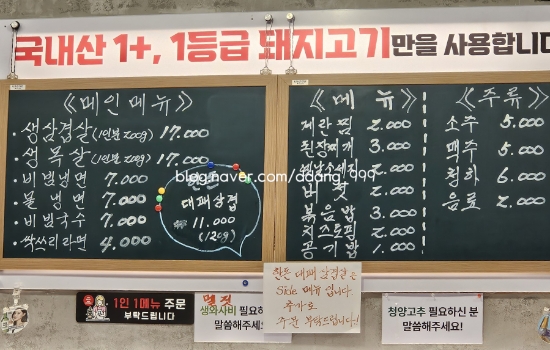 국내산 1+, 1등급 돼지고기만을 사용합니다
《메인 메뉴》
· 생삼겹살 (1인분 200g) 17.000
· 생목살 (1인분 200g) 17.000
· 비빔냉면 7.000
· 물냉면 7.000
· 비빔국수 7.000
· 싹쓰리라면 4.000
대패삼겹
11.000
(120g)
《메 뉴》
계란찜 2.000
된장찌개 3.000
옛날소세지 2.000
버섯 2.000
볶음밥 3.000
치즈토핑 2.000
공기밥 1.000
《주류》
소주 5.000
맥주 5.000
청하 6.000
음료 2.000
blog.naver.com/adang_999
1인 1메뉴 주문
부탁드립니다
멜젓
생와사비 필요하
말씀해주세
찐든 대패삼겹은
Side 메뉴 입니다.
추가로
주문 부탁드립니다!
청양고추 필요하신 분
말씀해주세요!